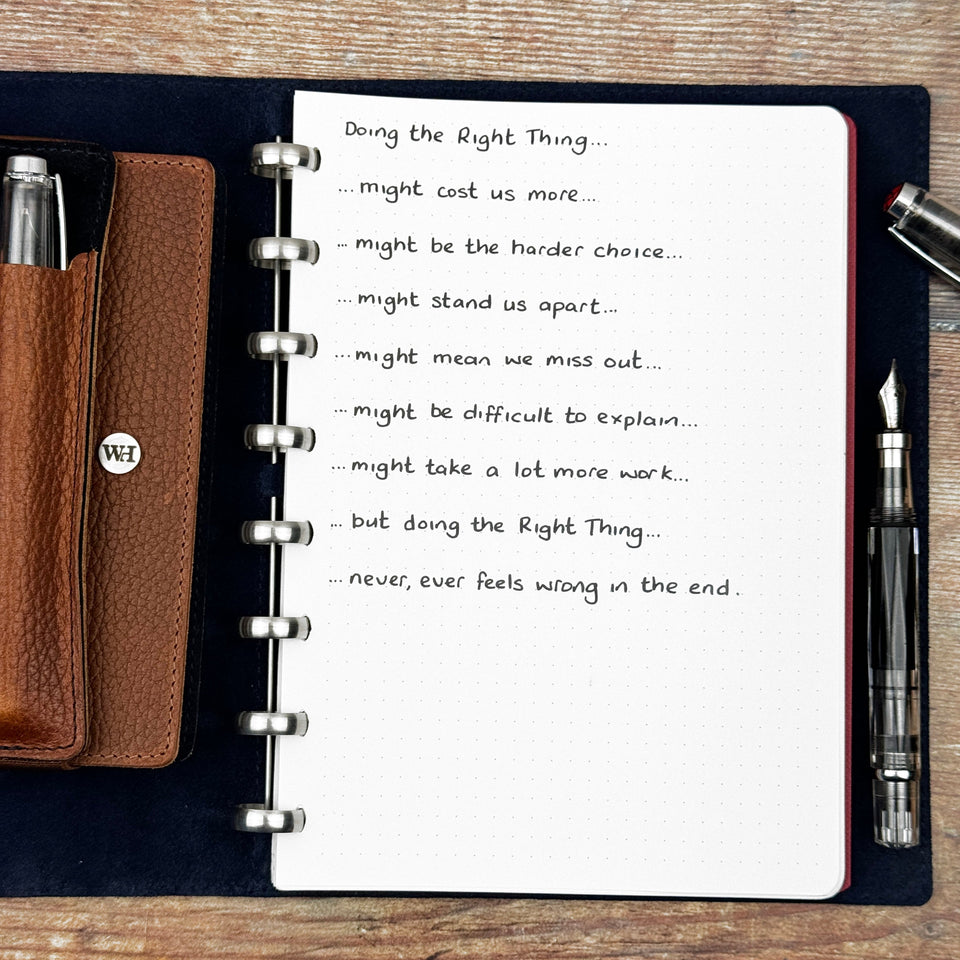 Doing the Right Thing...
...might cost us more...
...might be the harder choice...
...might stand us apart...
...might mean we miss out...
...might be difficult to explain...
...might take a lot more work...
... but doing the Right Thing...
... never, ever feels wrong in the end.
WH